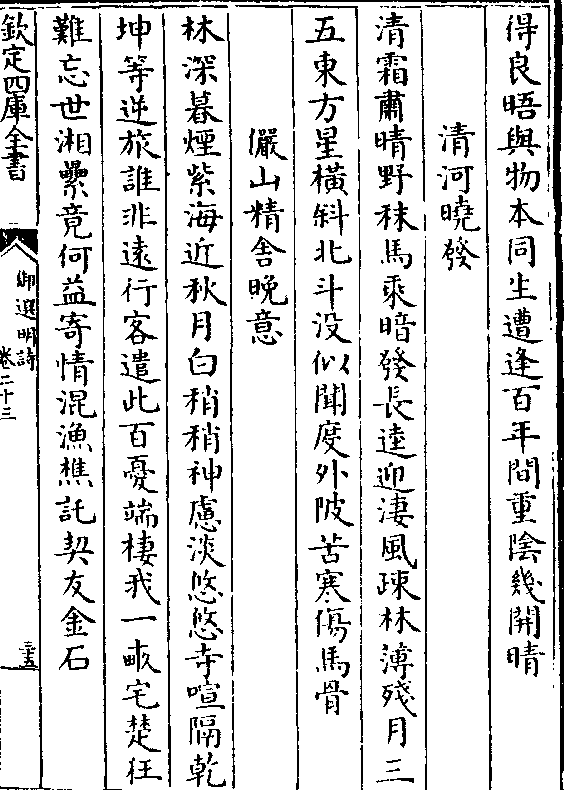 得良晤與物本同生遭逢百年間重陰幾開晴
清河曉發
清霜肅晴野秣馬乘暗發長逵迎淒風疎林薄殘月三
五東方星橫斜北斗没似聞度外陂苦寒傷馬骨
儼山精舍晚意
林深暮煙紫海近秋月白稍稍神慮淡悠悠寺喧隔乾
坤等逆旅誰非遠行客遣此百憂端棲我一畝宅楚狂
難忘世湘纍竟何益寄情混漁樵託契友金石
欽定四庫全書
御選明詩
卷二十三